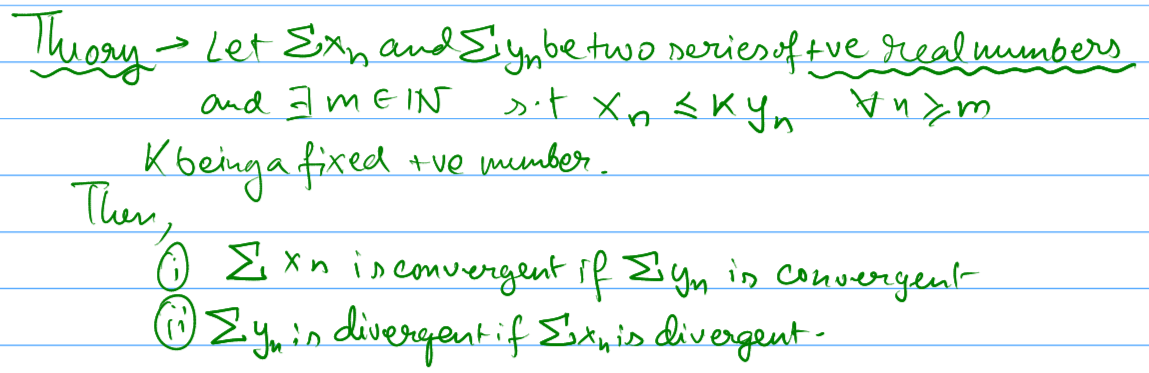 Theory → Let Σxₙ and Σyₙ be two series of +ve real numbers
and ∃ m ∈ ℕ s.t xₙ ≤ K yₙ ∀ n ≥ m
K being a fixed +ve number.
Then,
(i) Σ xₙ is convergent if Σyₙ is convergent
(ii) Σyₙ is divergent if Σxₙ is divergent.